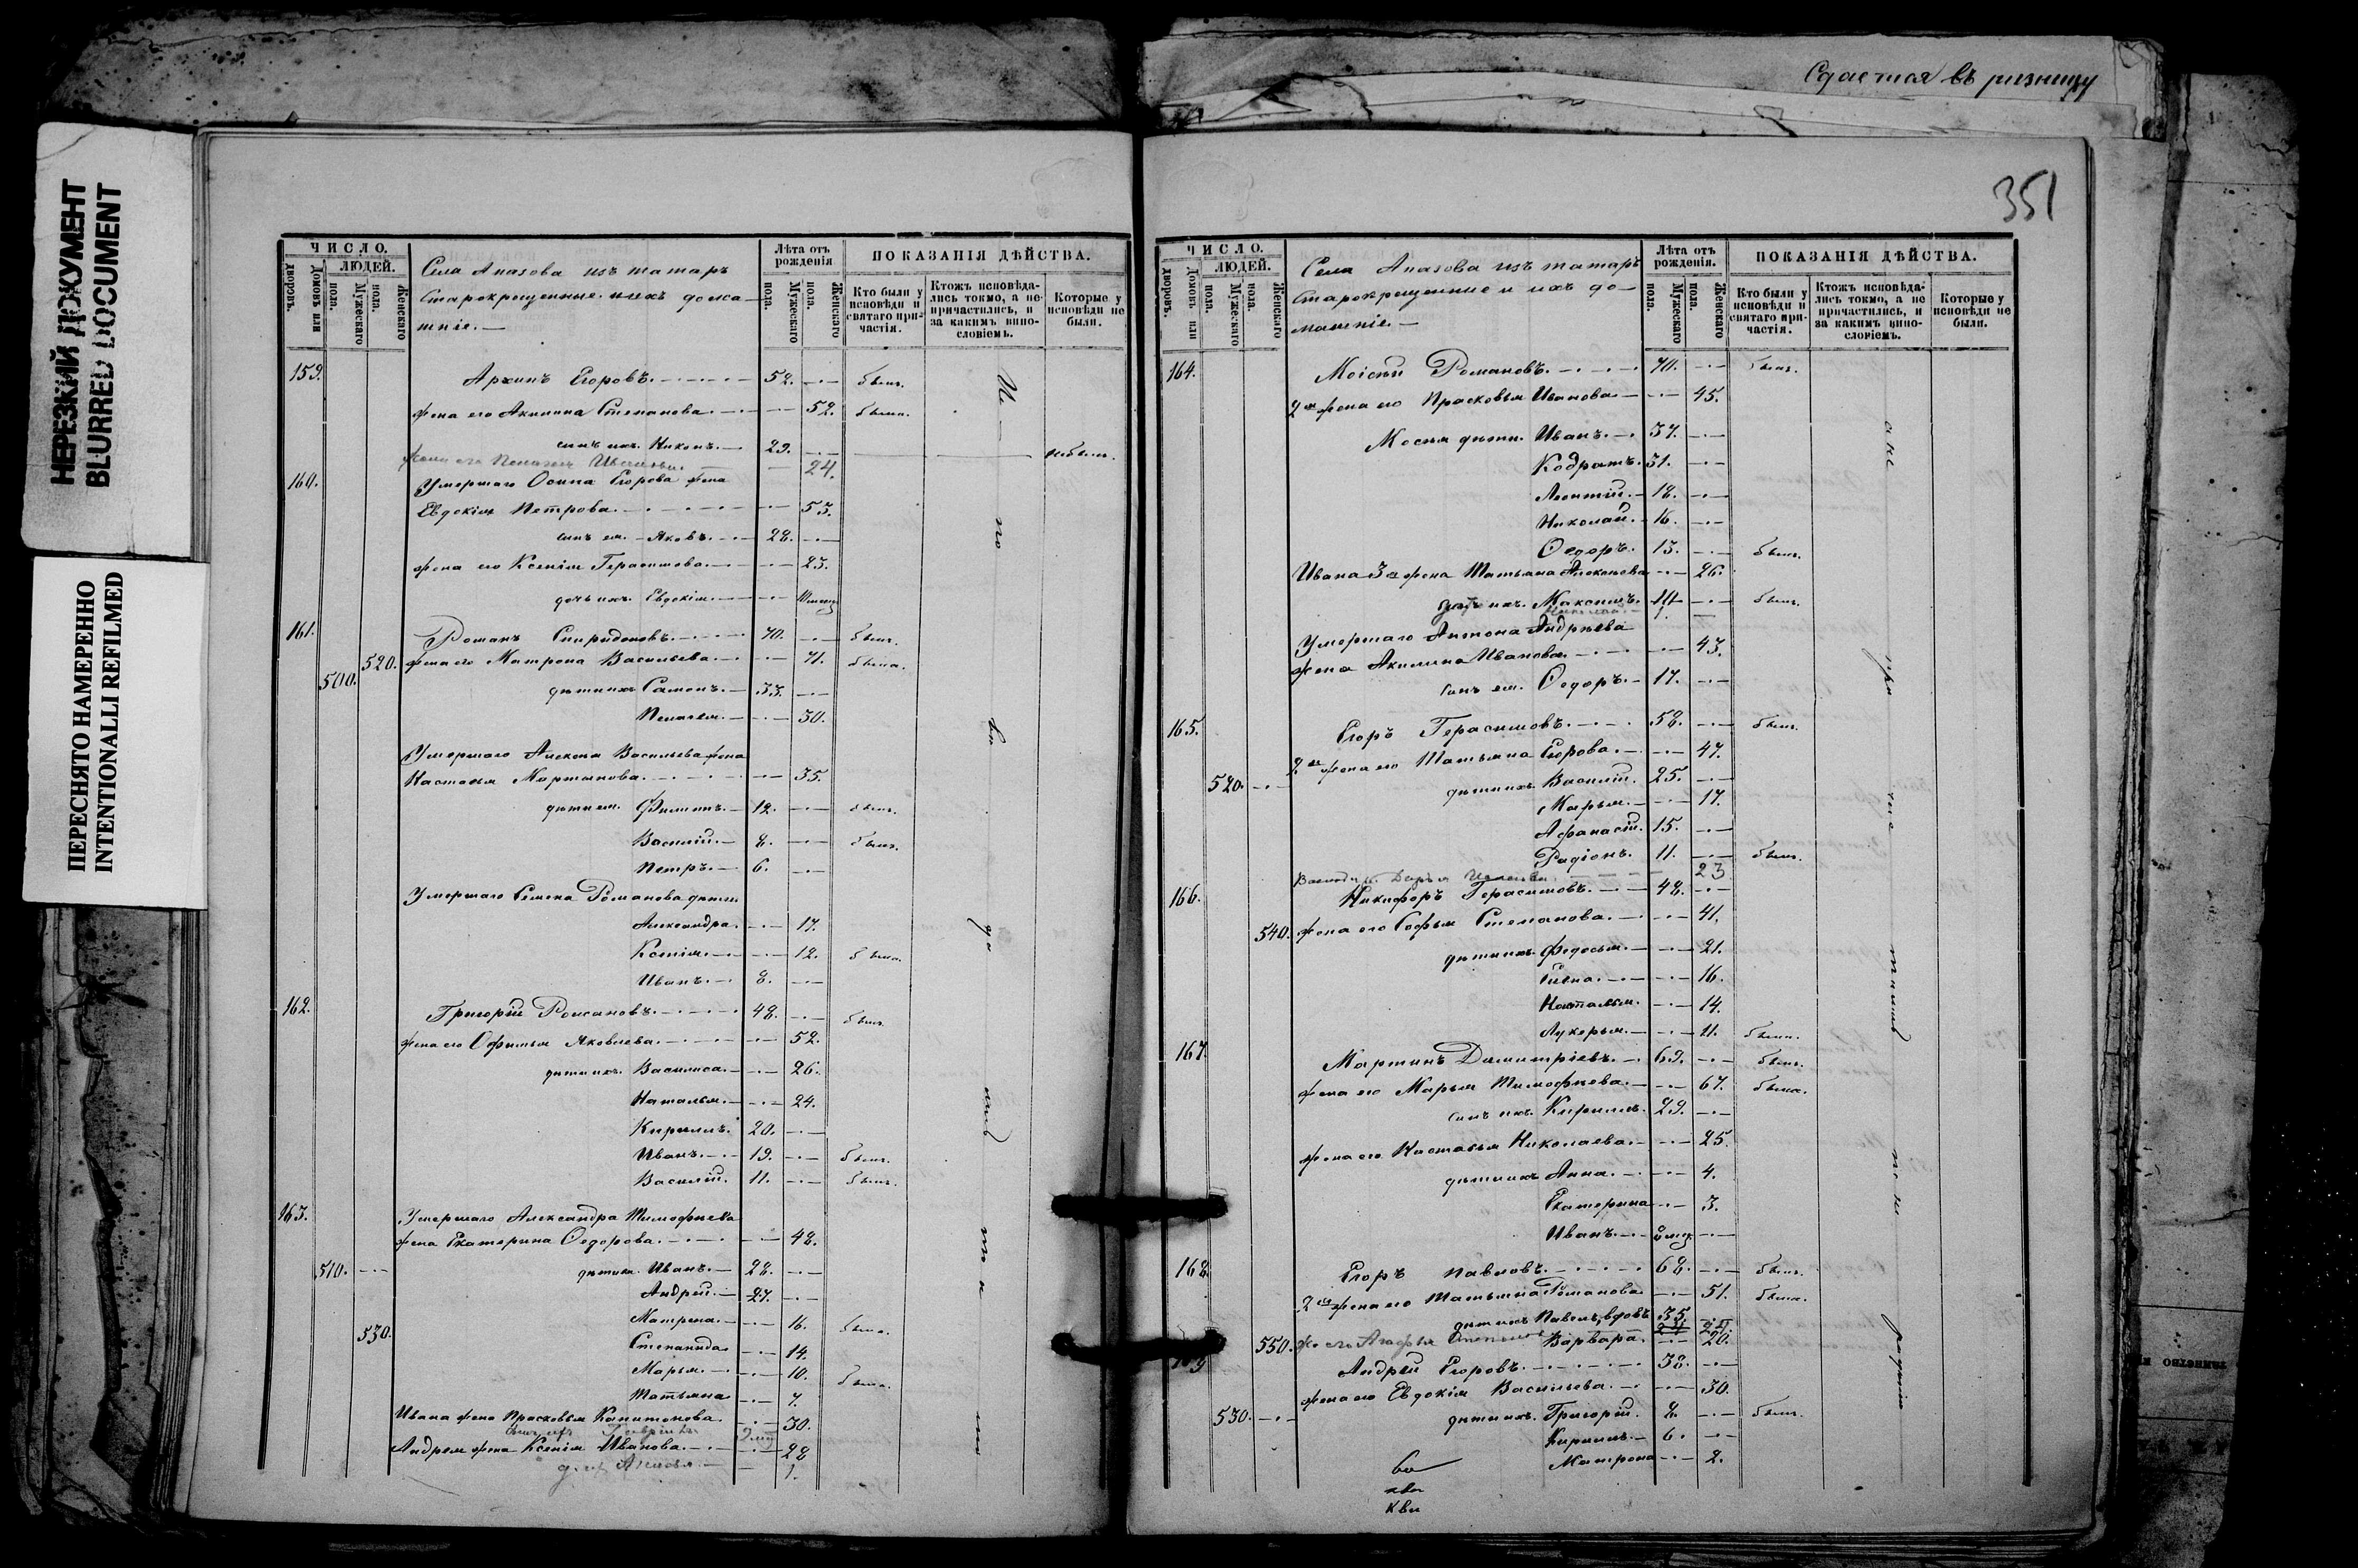 НЕРЕЗКИЙ ДОКУМЕНТ
BLURRED DOCUMENT
ПЕРЕСНЯТО НАМЕРЕННО
INTENTIONALLI REFILMED
ЧИСЛО.
ЛЮДЕЙ.
Домовъ или дворовъ.
Мужескаго пола.
Женскаго пола.
Села Апазова изъ татаръ
Старокрещенные и ихъ дома-
шніе.—
Лѣта отъ рожденія
Мужескаго пола.
Женскаго пола.
ПОКАЗАНІЯ ДѢЙСТВА.
Кто были у исповѣди и святаго при-частія.
Ктожъ исповѣда-лись токмо, а не причастились, и за какимъ вино-словіемъ.
Которые у исповѣди не были.
159. Архипъ Егоровъ. 52. былъ.
жена его Акилина Степанова. 52. была.
сынъ ихъ Никонъ. 29. небылъ.
жена его Пелагея 24.
160. Умершаго Осипа Егорова жена
Евдокія Петрова. 53.
сынъ ея Яковъ. 28.
жена его Ксенія Герасимова. 23.
дочь ихъ Евдокія.
161. Романъ Спиридоновъ. 70. былъ.
520. жена его Матрона Васильева. 71. была.
500. дѣти ихъ Самонъ. 33.
Пелагея. 30.
Умершаго Алексѣя Васильева жена
Настасья Мартынова. 35.
дѣти ея Филипъ. 12. былъ.
Василій. 8. былъ.
Петръ. 6.
Умершаго Семена Романова дѣти
Александра. 17.
Ксенія. 12. была.
Иванъ. 8.
162. Григорій Романовъ. 48. былъ.
жена его Офимья Яковлева. 52.
дѣти ихъ Василиса. 26.
Наталья. 24.
Кирилъ. 20.
Иванъ. 19. былъ.
Василій. 11. былъ.
163. Умершаго Александра Тимофеева
жена Екатерина Ѳедорова. 48.
510. дѣти ея Иванъ. 28.
Андрей. 27.
530. Матрена. 16. была.
Степанида 14.
Марья. 10. была.
Татьяна 7.
Ивана жена Прасковья Капитонова. 30.
сынъ ихъ Гавріилъ
Андрея жена Ксенія Иванова. 28
1.
Сдается въ ризницу
351
ЧИСЛО.
ЛЮДЕЙ.
Домовъ или дворовъ.
Мужескаго пола.
Женскаго пола.
Села Апазова изъ татаръ
Старокрещенные и ихъ до-
машніе.—
Лѣта отъ рожденія.
Мужескаго пола.
Женскаго пола.
ПОКАЗАНІЯ ДѢЙСТВА.
Кто были у исповѣди и святаго при-частія.
Ктожъ исповѣда-лись токмо, а не причастились, и за какимъ вино-словіемъ.
Которые у исповѣди не были.
164. Моісей Романовъ. 70. былъ.
2я жена его Прасковья Иванова 45.
Мосея дѣти Иванъ. 37.
Кодратъ. 31.
Леонтій. 18.
Николай. 16.
Ѳедоръ. 13. былъ.
Ивана 3я жена Татьяна Алексѣева 26.
ихъ Максимъ. былъ.
Умершаго Антона Андреева
жена Акилина Иванова. 43.
сынъ ея Ѳедоръ. 17.
165. Егоръ Герасимовъ. 58. былъ.
2я жена его Татьяна Егорова. 47.
520. дѣти ихъ Василій. 25.
Марья. 17.
Афанасій. 15.
Радіонъ. 11. былъ.
Дарья 23
166. Никифоръ Герасимовъ. 48.
540. жена его Софья Степанова. 41.
дѣти ихъ Федосья. 21.
Елена. 16.
Наталья. 14.
Лукерья. 11. была.
167. Мартинъ Димитріевъ. 69. былъ.
жена его Марья Тимофеева. 67. была.
сынъ ихъ Кирилъ. 29.
жена его Настасья Николаева. 25.
дѣти ихъ Анна. 4.
Екатерина 3.
Иванъ.
168. Егоръ Павловъ. 68. былъ.
2я жена его Татьяна Романова 51. была.
дѣти ихъ Павелъ, вдовъ 35
550. Варвара. 20.
Андрей Егоровъ. 38.
жена его Евдокія Васильева. 30.
530. дѣти ихъ Григорій. 8. былъ.
Кирилъ. 6.
Матрона 2.